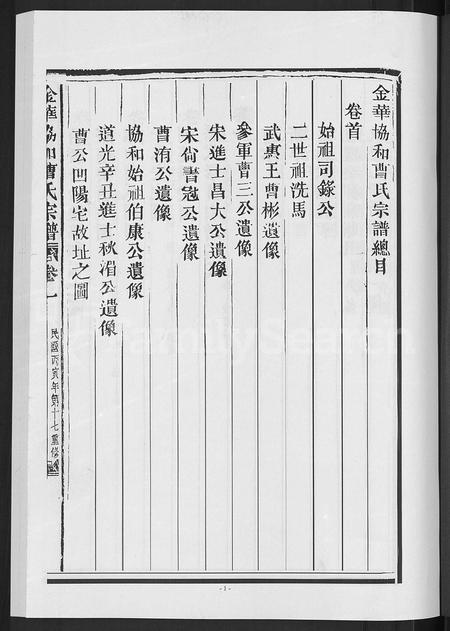 金華協和曹氏宗譜總目
卷首
始祖司錄公
二世祖洗馬
武惠王曹彬遺像
參軍曹三公遺像
宋進士昌大公遺像
宋尚書冠公遺像
曹洧公遺像
協和始祖伯康公遺像
道光辛丑進士秋湄公遺像
曹公凹陽宅故址之圖
金華協和曹氏宗譜 卷一
民國丙寅年第十七重修
-1-
FamilySearch